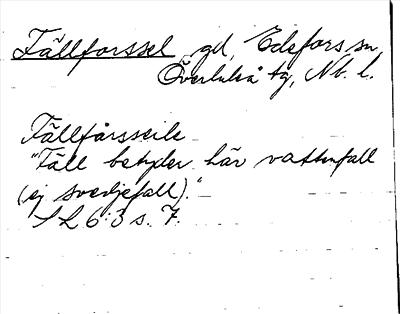 Fällforssel gd, Edefors sn,
Överluleå tg, Nb. l.
Fällfårsseila
"Fäll betyder här vattenfall
(ej svedjefall)."
SL 6:3 s. 7.